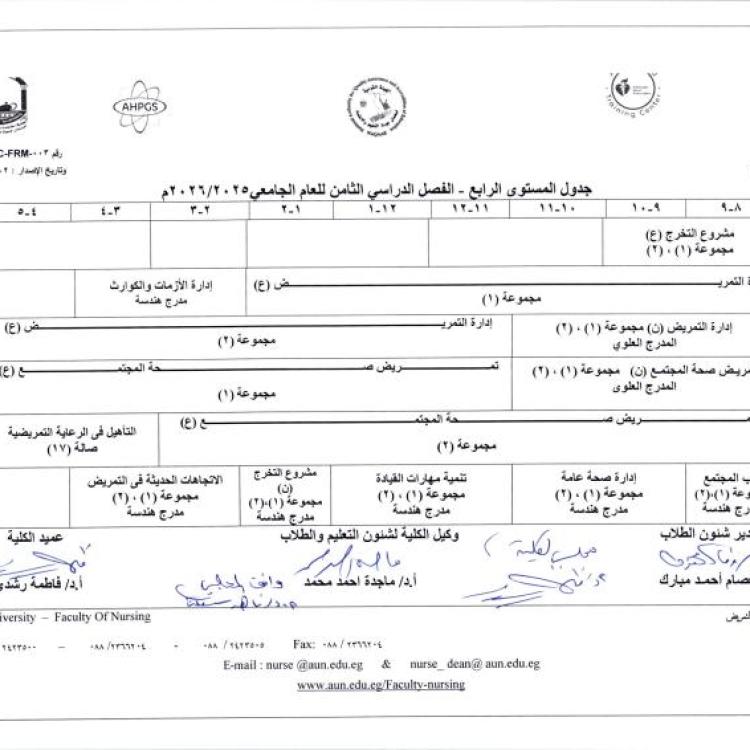 AHPGS
Training Center
C-FRM-٠٠٣ رقم
وتاريخ الإصدار : ٠٢
جدول المستوى الرابع - الفصل الدراسي الثامن للعام الجامعي ٢٠٢٦/٢٠٢٥م
٩-٨ ١٠-٩ ١١-١٠ ١٢-١١ ١-١٢ ٢-١ ٣-٢ ٤-٣ ٥-٤
مشروع التخرج (ع)
مجموعة (١) ، (٢)
ة التمريـــض (ع)
مجموعة (١)
إدارة الأزمات والكوارث
مدرج هندسة
إدارة التمريض (ن) مجموعة (١) ، (٢)
المدرج العلوي
إدارة التمريـــض (ع)
مجموعة (٢)
مريض صحة المجتمع (ن) مجموعة (١) ، (٢)
المدرج العلوى
تمـــريض صـــحة المجتمـــع (ع)
مجموعة (١)
ـــريض صـــحة المجتمـــع (ع)
مجموعة (٢)
التأهيل فى الرعاية التمريضية
صالة (١٧)
ب المجتمع
عة (١)،(٢)
ج هندسة
إدارة صحة عامة
مجموعة (١) ، (٢)
مدرج هندسة
تنمية مهارات القيادة
مجموعة (١) ، (٢)
مدرج هندسة
مشروع التخرج
(ن)
مجموعة (١)،(٢)
مدرج هندسة
الاتجاهات الحديثة فى التمريض
مجموعة (١) ، (٢)
مدرج هندسة
دير شئون الطلاب
صام أحمد مبارك
مجلس الكلية
وكيل الكلية لشئون التعليم والطلاب
أ.د/ ماجدة احمد محمد
عميد الكلية
أ.د/ فاطمة رشدى
iversity – Faculty Of Nursing
التمريض
٢٤٢٣٥٠٠ – ٠٨٨ /٢٣٦٦٢٠٤ - ٠٨٨ /٢٤٢٣٥٠٥ Fax: ٠٨٨ /٢٣٦٦٢٠٤
E-mail : nurse @aun.edu.eg & nurse_ dean@ aun.edu.eg
www.aun.edu.eg/Faculty-nursing